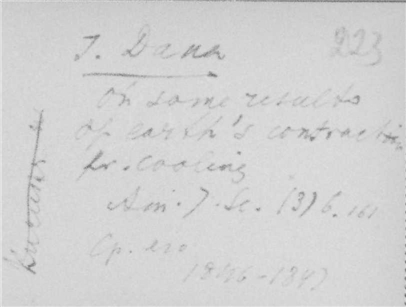 J. Dana
223
on some results
of earth's contraction
fr. cooling
Am. J. Sc. (3) 6. 161
1846-1847